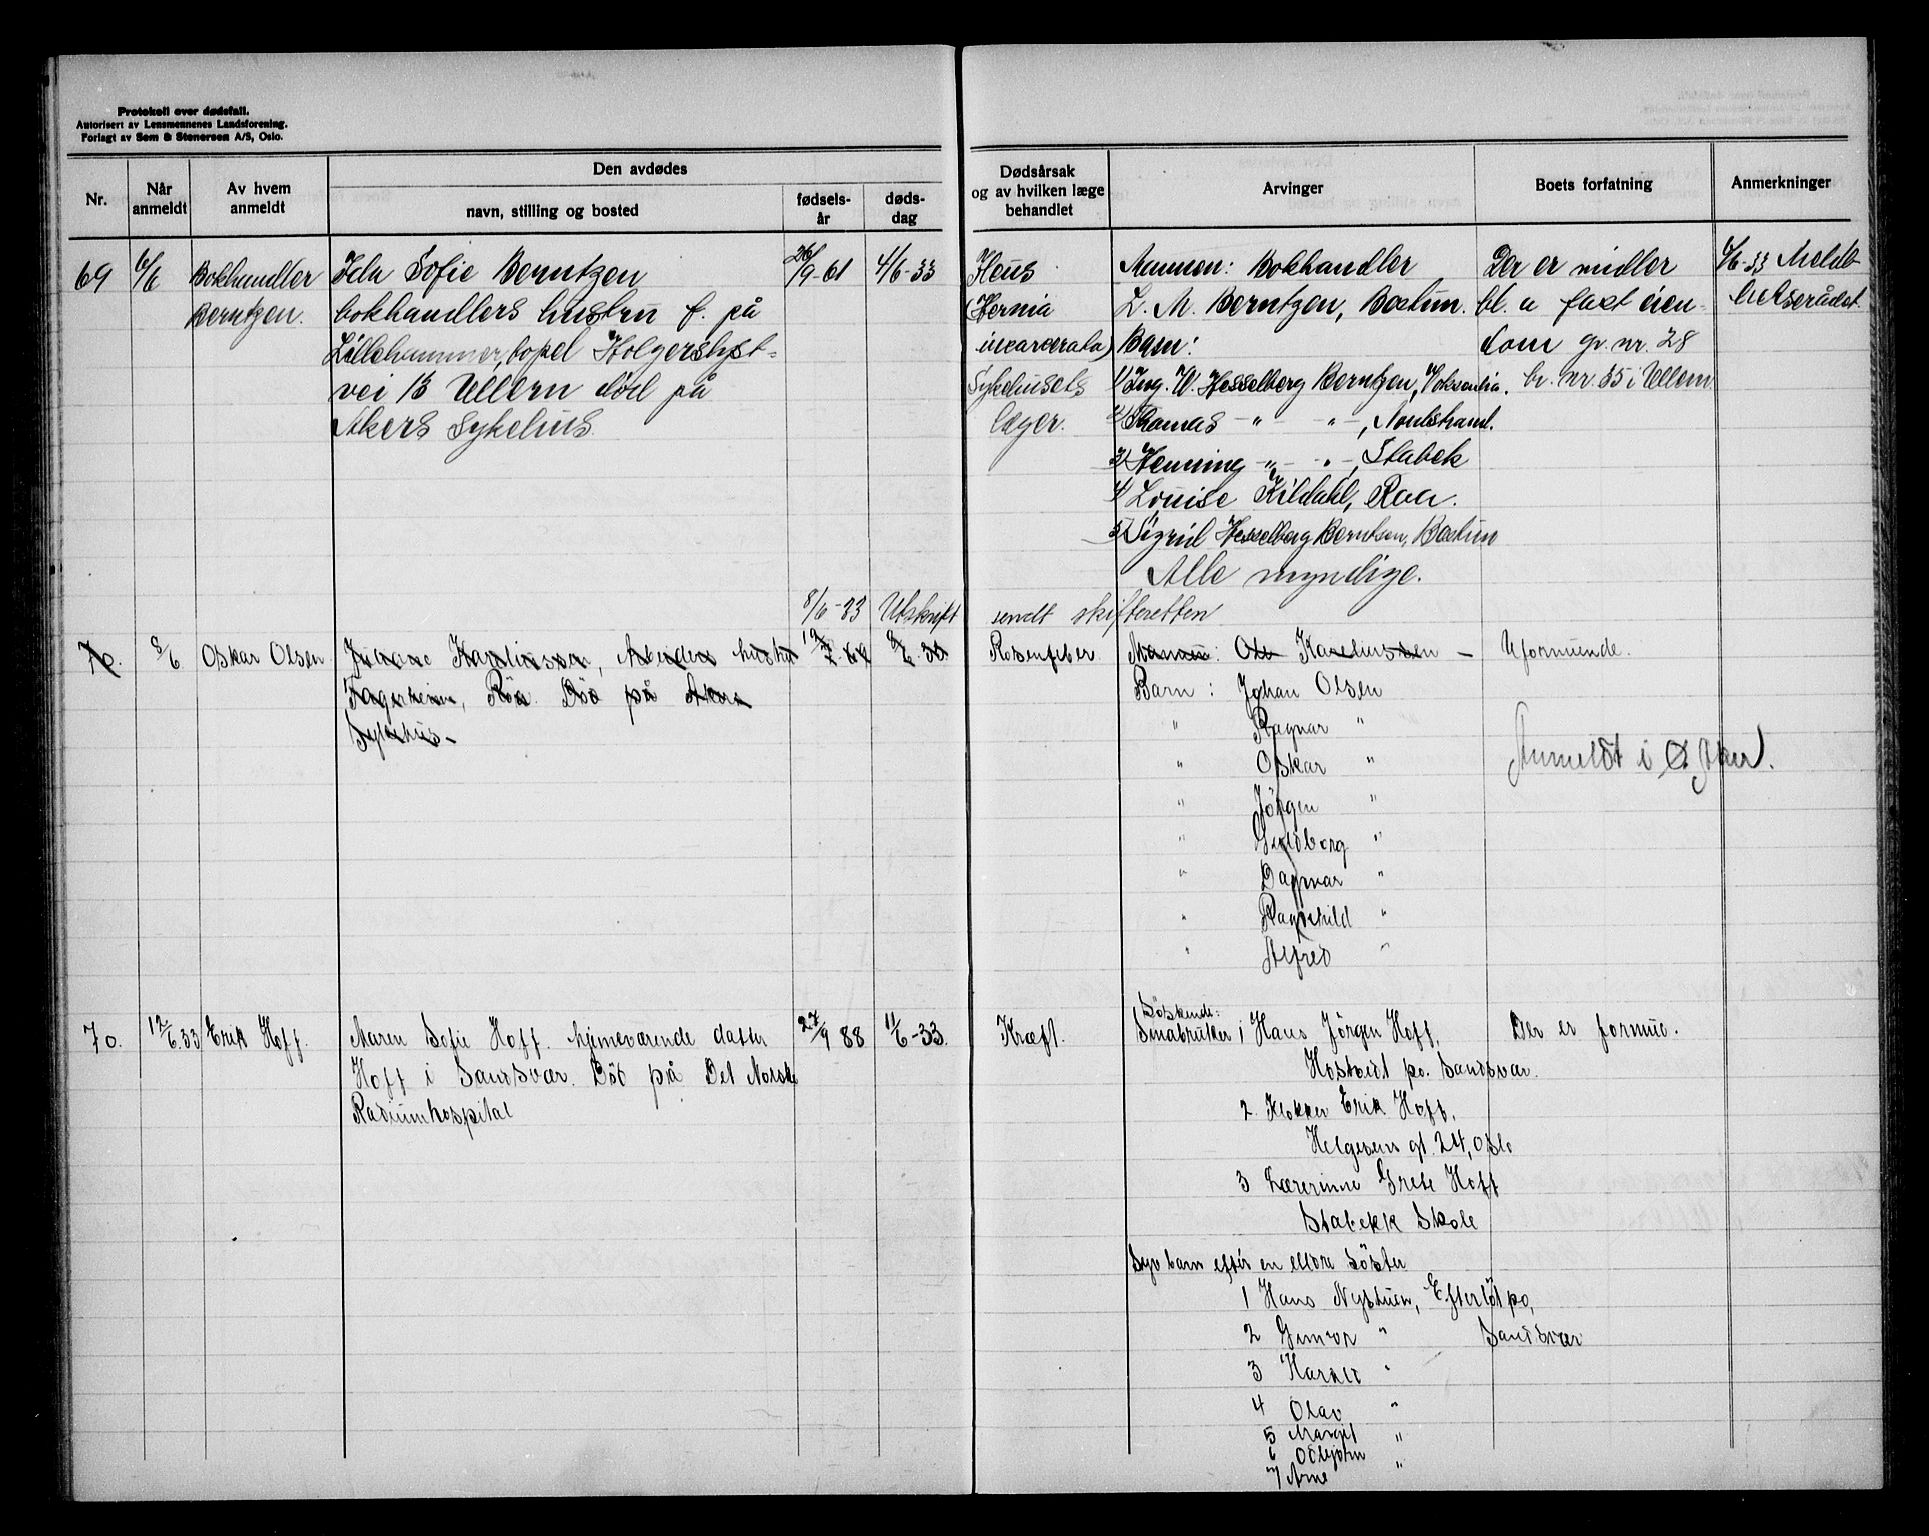 Protokoll over dødsfall.
Autorisert av Lensmennenes Landsforening.
Forlagt av Sem & Stenersen A/S, Oslo.
Nr.
Når anmeldt
Av hvem anmeldt
Den avdødes
navn, stilling og bosted
fødsels-år
døds-dag
Dødsårsak og av hvilken læge behandlet
Arvinger
Boets forfatning
Anmerkninger
69
6/6
Bokhandler
Berntzen.
Sofie Berntzen
bokhandlers hustru f. på
Lillehammer, bopel Holgerslyst-
vei 13 Ullern død på
Akers Sykehus.
26/9-61
4/6-33
Ileus
(Hernia
incarcerata)
Sykehusets
læger.
Mannen: Bokhandler
L. M. Berntzen, Bestum.
Barn:
1) Ing. W. Hesselberg Berntzen,
2) Thomas -"- -"-, Nordstrand.
3) Henning -"- -"-, Stabek
4) Louise Kildahl, Roa.
5) Sigrid Hesselberg Berntsen, Bestun
Alle myndige.
Der er midler
bl. a fast eien-
dom gr. nr. 28
br. nr. 35 i Ullern
6/6-33 Meldt
8/6-33 Utskrift sendt skifteretten
70.
8/6
Oskar Olsen
Karelinssen, Arbeiders hustru
Fagerheim, Röa. Död på Akers
Sykehus-
Rosenfeber
Mannen: Ole Kareliussen -
Barn: Johan Olsen
" Ragnar "
" Oskar "
" Jörgen "
" Guldborg "
" Dagmar "
" Ragnhild "
" Alfred "
Uformuende.
Anmeldt i Ø Aker.
70.
12/6.33
Erik Hoff.
Maren Sofie Hoff. hjemeværende datter
Hoff i Sandsvær. Död på Det Norske
Radiumhospital
27/9 88
11/6-33.
Kræft.
Söskende:
Småbruker 1 Hans Jörgen Hoff,
Hostvedt po. Sandsvær.
2. Klokker Erik Hoff,
Helgesens gt. 24, Oslo
3 Lærerinne Grete Hoff
Stabekk Skole
Syv barn efter en eldre söster
1 Hans Nystuen, Efterlöt po,
2 Gunvor " Sandsvær
3 Harald "
4 Olav "
5 Margit "
6 Oddbjörn
7 Arne "
Der er formue.